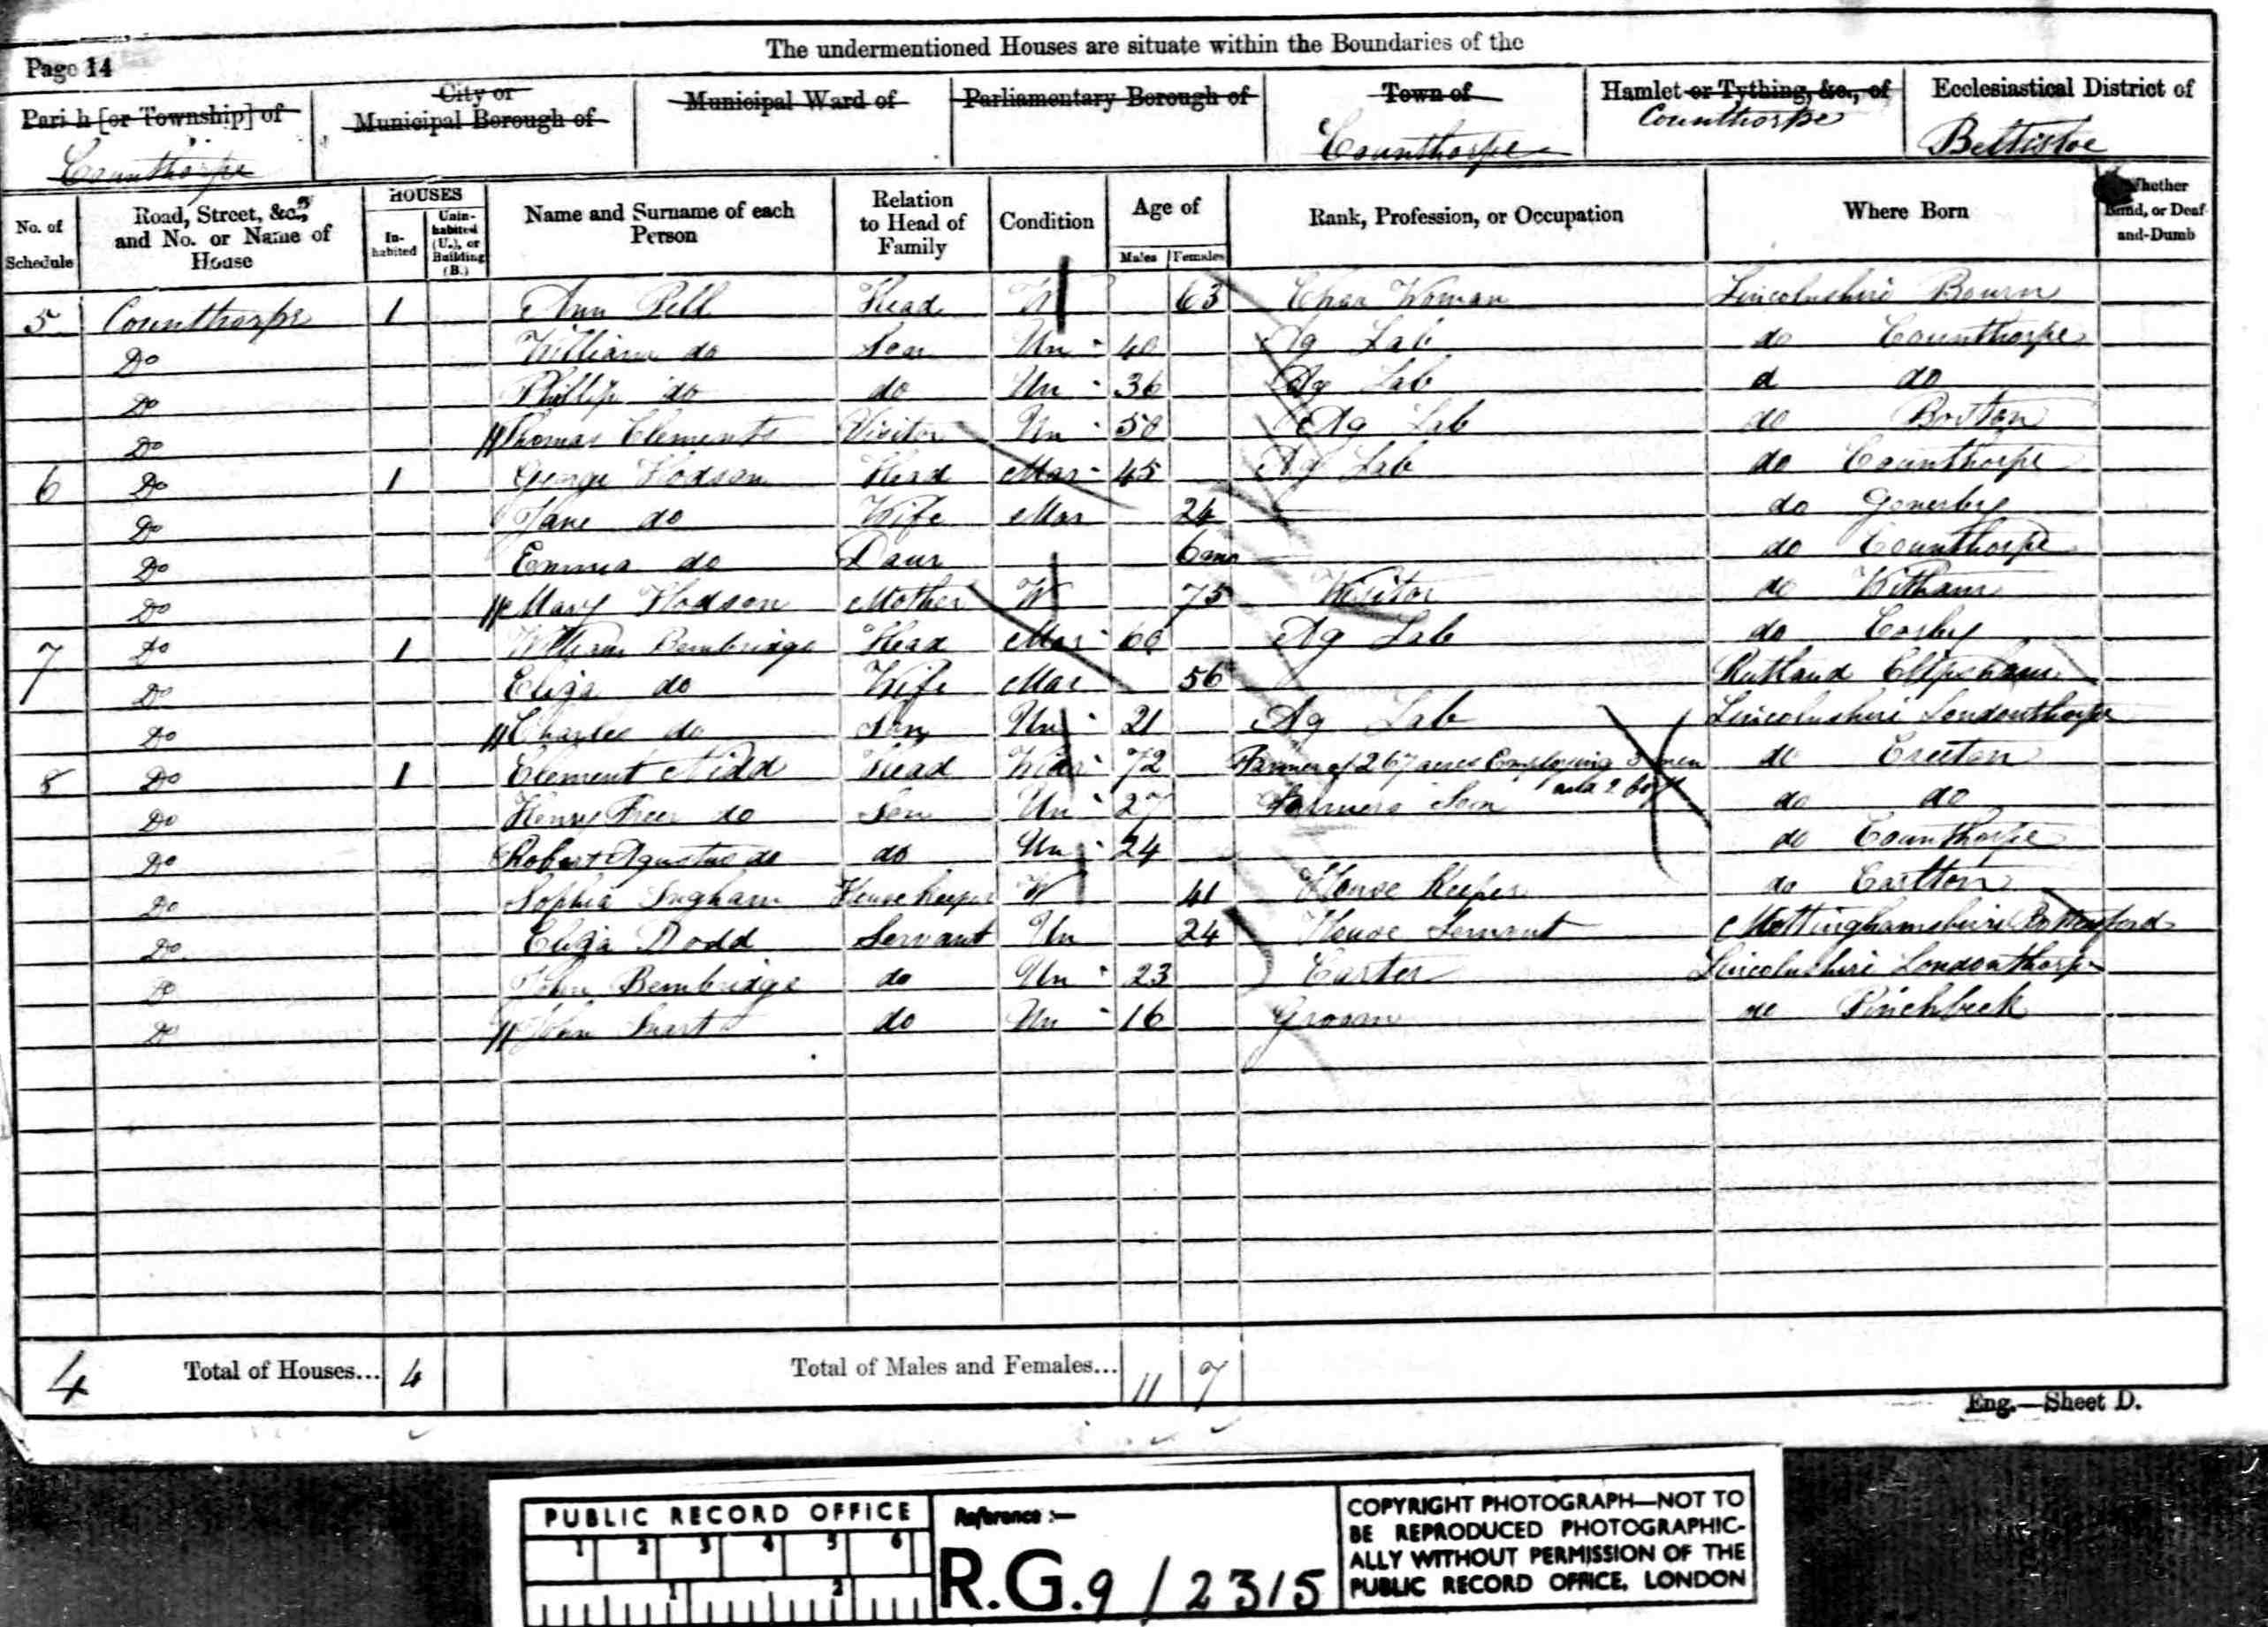 The undermentioned Houses are situate within the Boundaries of the
Page 14
Parish [or Township] of
City or Municipal Borough of
Municipal Ward of
Parliamentary Borough of
Town of
Hamlet or Tything, &c., of
Ecclesiastical District of
Counthorpe
Counthorpe
Counthorpe
No. of Schedule
Road, Street, &c., and No. or Name of House
HOUSES
In-habited
Unin-habited (U.), or Building (B.)
Name and Surname of each Person
Relation to Head of Family
Condition
Age of
Males
Females
Rank, Profession, or Occupation
Where Born
Whether Blind, or Deaf-and-Dumb
5 Counthorpe 1 Ann Pell Head W 63 Char Woman Lincolnshire Bourn
Do William do Son Un 40 Ag Lab do Counthorpe
Do Phillip do do Un 36 Ag Lab d do
Do Thomas Clements Visitor Un 50 Ag Lab do
6 Do 1 George Hodson Head Mar 45 Ag Lab do Counthorpe
Do Jane do Wife Mar 24 do Gonerby
Do Emma do Daur 6 mo do Counthorpe
Do Mary Hodson Mother W 75 Visitor do Witham
7 Do 1 William Bembridge Head Mar 60 Ag Lab do Corby
Do Eliza do Wife Mar 56 Rutland Clipsham
Do Charles do Son Un 21 Ag Lab Lincolnshire Londonthorpe
8 Do 1 Clement Nidd Head 72 Farmer of 267 acres Employing 3 men and 2 boys do Creeton
Do Henry Freer do Son Un 27 Farmers Son do do
Do Robert Agustus do do Un 24 do Counthorpe
Do Sophia Ingham House Keeper W 41 House Keeper do Carlton
Do Eliza Dodd Servant Un 24 House Servant Nottinghamshire Bottesford
Do John Bembridge do Un 23 Carter Lincolnshire Londonthorpe
Do John Smart do Un 16 Groom do Pinchbeck
4 Total of Houses... 4 Total of Males and Females... 11 7
Eng.—Sheet D.
PUBLIC RECORD OFFICE
1 2 3 4 5 6
1 2
Reference :—
R.G. 9 / 2315
COPYRIGHT PHOTOGRAPH—NOT TO
BE REPRODUCED PHOTOGRAPHIC-
ALLY WITHOUT PERMISSION OF THE
PUBLIC RECORD OFFICE, LONDON